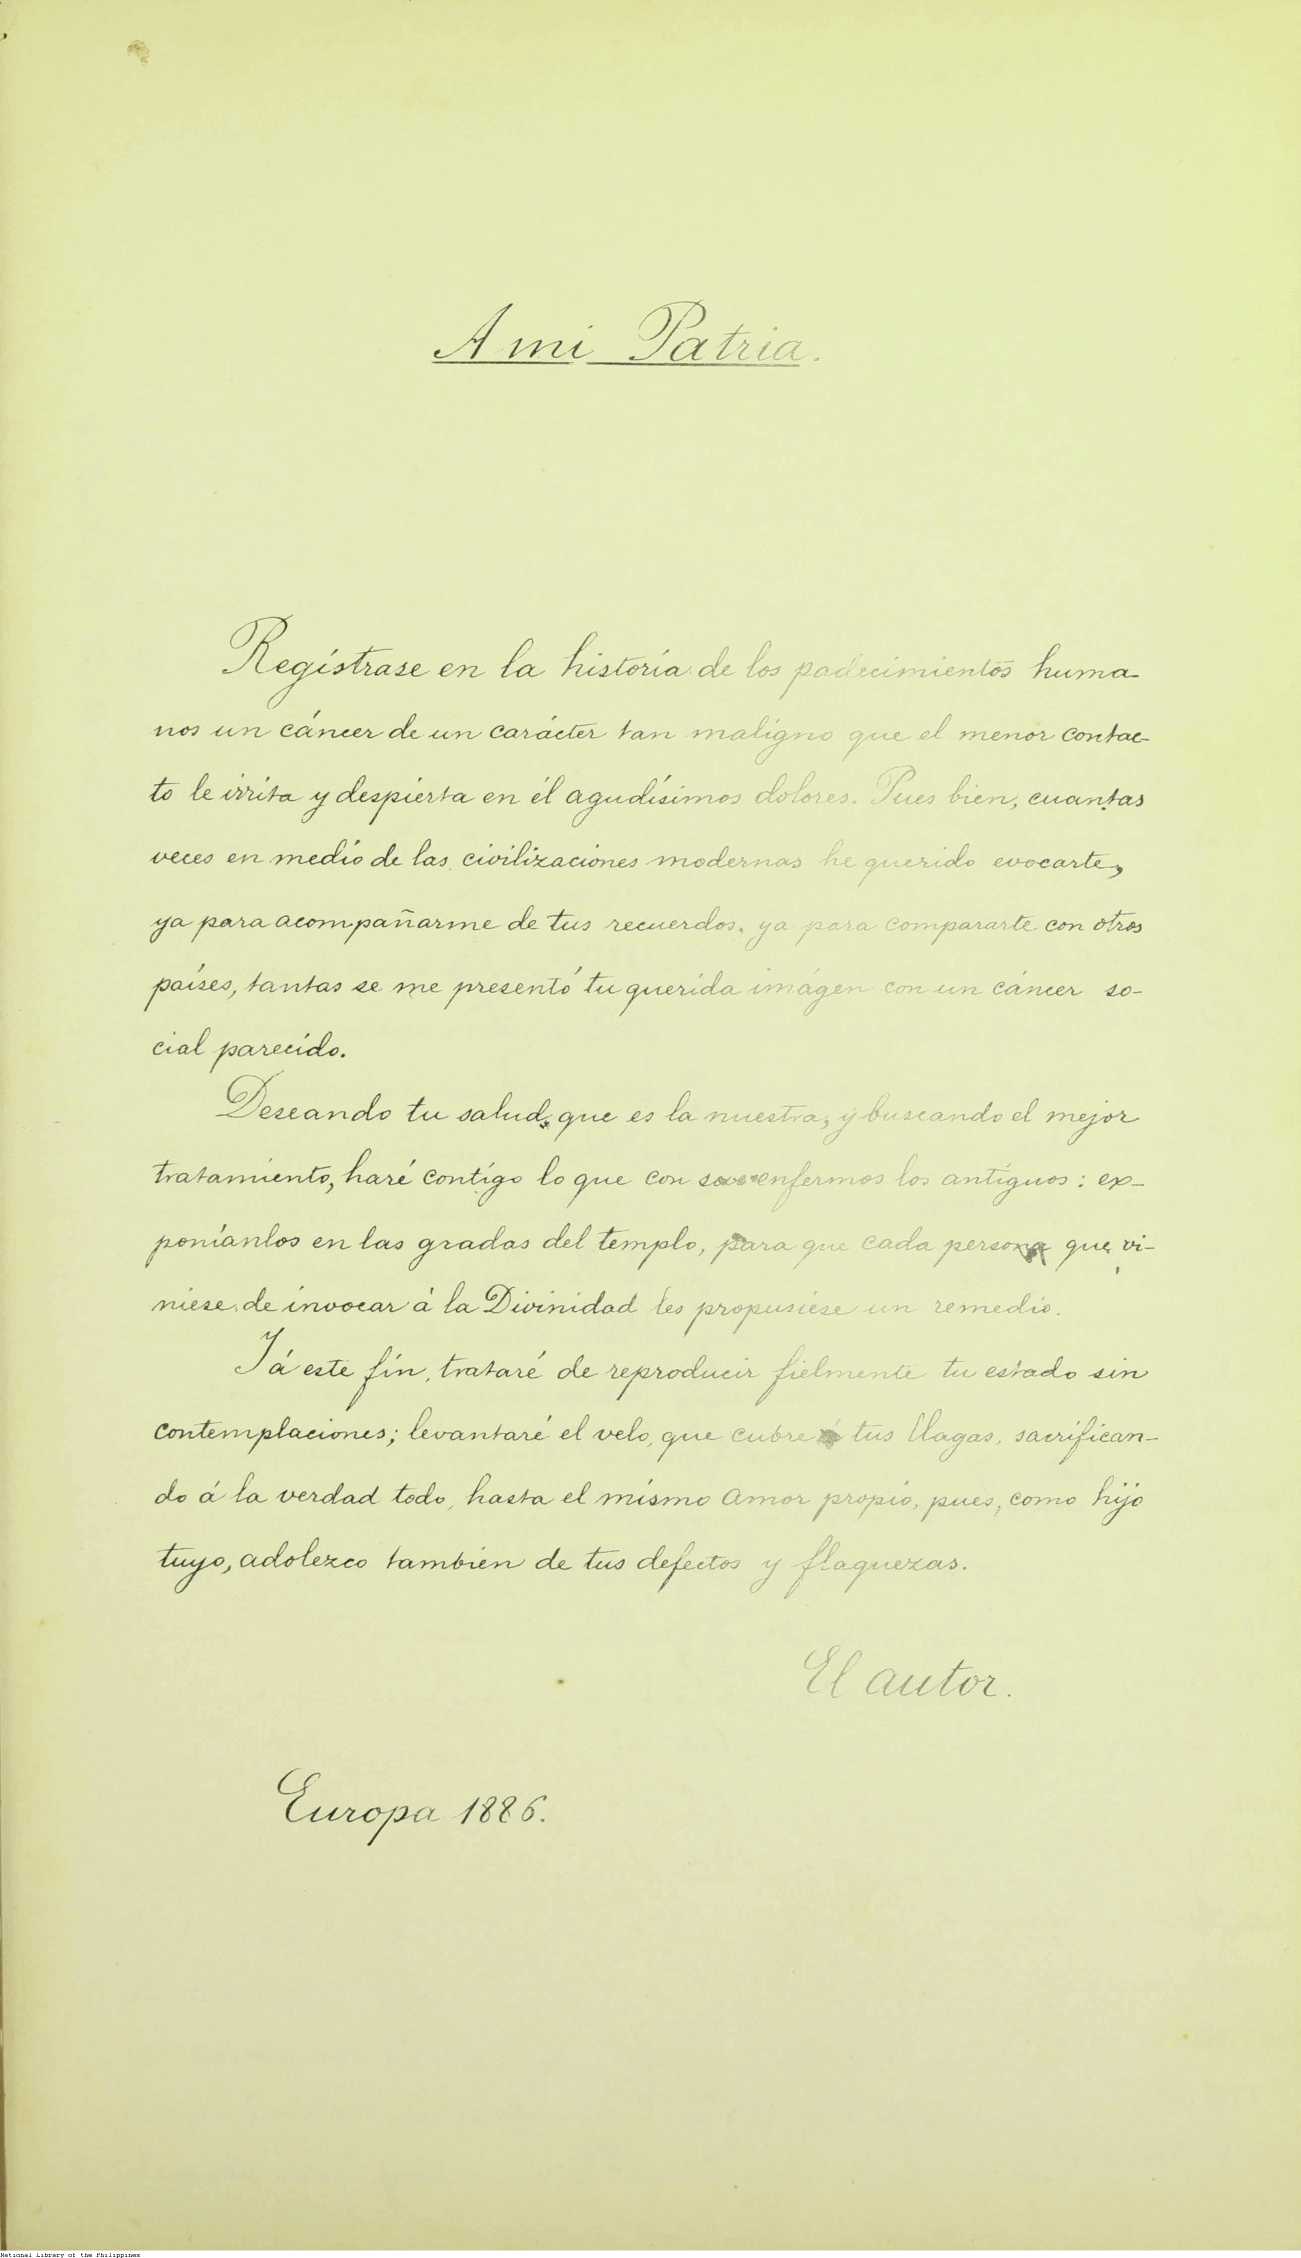 A mi Patria.
Regístrase en la historia de los padecimientos huma-
nos un cáncer de un carácter tan maligno que el menor contac-
to le irrita y despierta en él agudísimos dolores. Pues bien, cuantas
veces en medio de las civilizaciones modernas he querido evocarte,
ya para acompañarme de tus recuerdos, ya para compararte con otros
países, tantas se me presentó tu querida imágen con un cáncer so-
cial parecido.
Deseando tu salud, que es la nuestra, y buscando el mejor
tratamiento, haré contigo lo que con sus enfermos los antiguos: ex-
poníanlos en las gradas del templo, para que cada persona que vi-
niese de invocar á la Divinidad les propusiese un remedio.
Y á este fín, trataré de reproducir fielmente tu estado sin
contemplaciones; levantaré el velo, que cubre tus llagas, sacrifican-
do á la verdad todo, hasta el mismo amor propio, pues, como hijo
tuyo, adolezco tambien de tus defectos y flaquezas.
El autor.
Europa 1886.
National Library of the Philippines